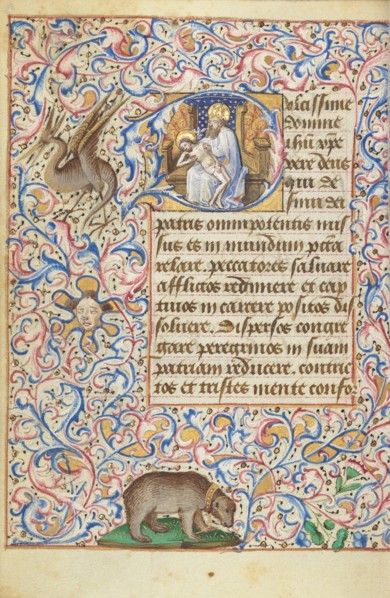 Dulcissime
domine
ihesu xpe
vere deus
qui de
sinu dei
patris omnipotentis mis
sus es in mundum pcta
relaxare. peccatores saluare
afflictos redimere et cap
tiuos in carcere positos dis
soluere. Dispersos congre
gare peregrinos in suam
patriam reducere. contric
tos et tristes mente confor